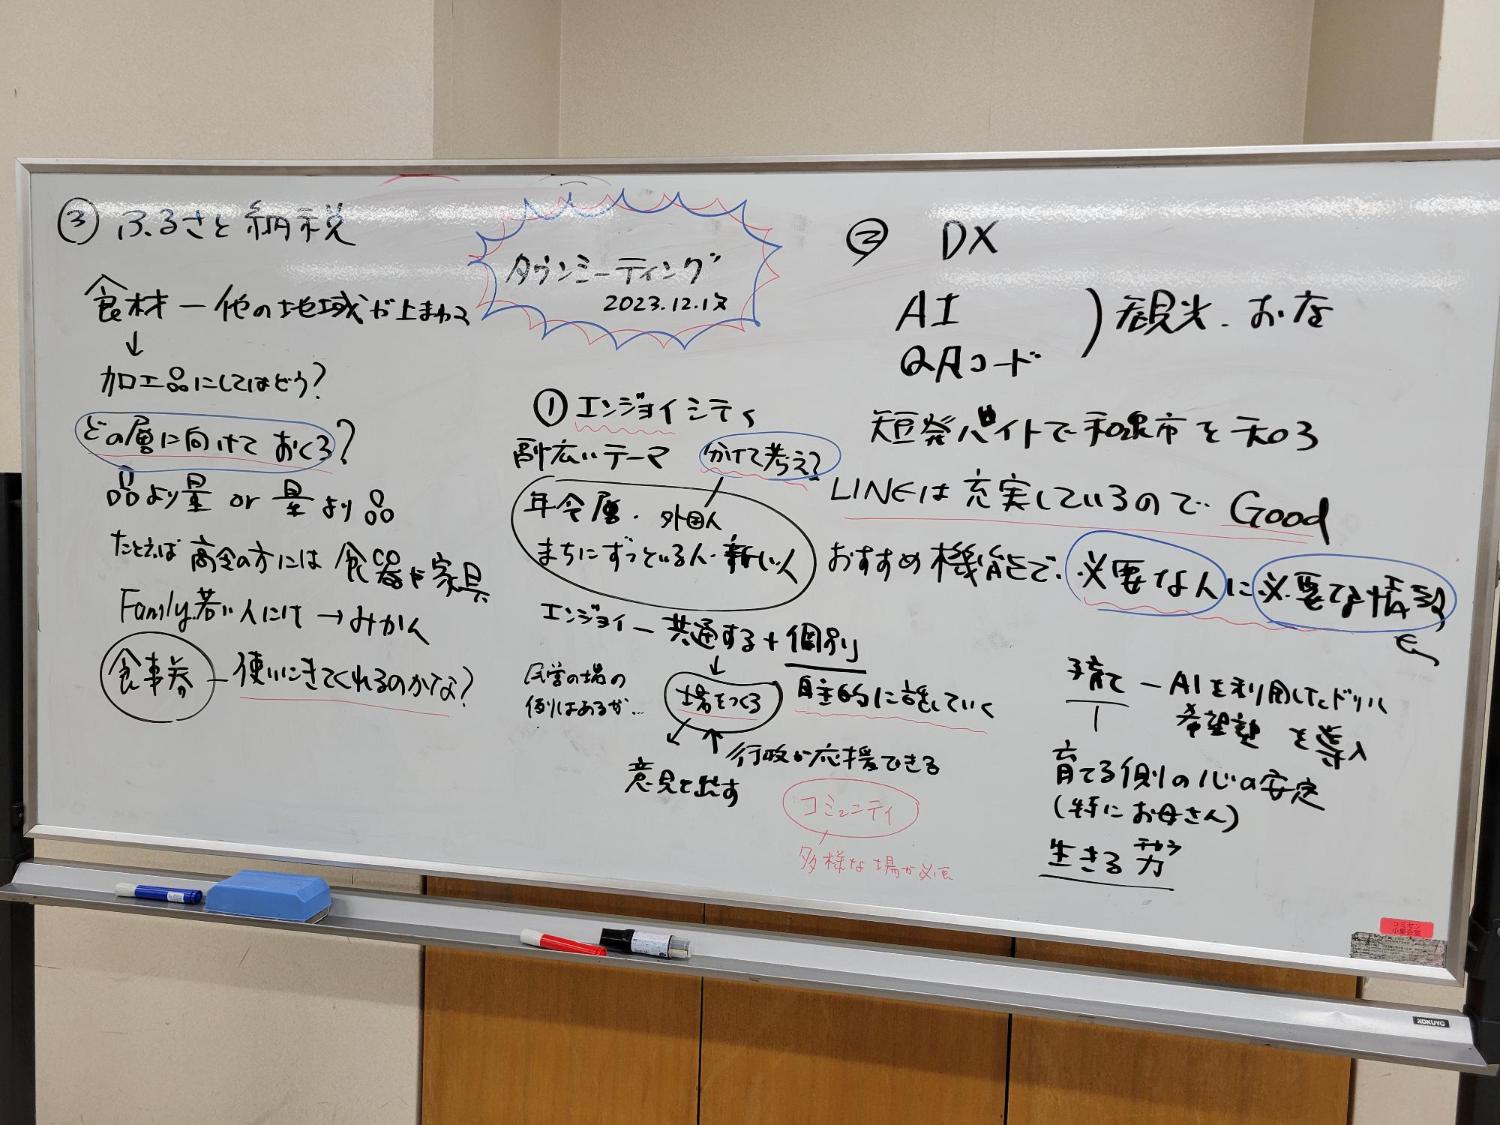 ③ ふるさと納税
食材 ー 他の地域が上まわる
↓
加工品にしてはどう?
どの層に向けて おくる?
品より量 or 量より品
たとえば 高令の方には 食器や家具
Family 若い人にけ → みかん
食事券 ー 使いにきてくれるのかな?
タウンミーティング
2023.12.17
① エンジョイシティ
副広いテーマ 分けて考え?
年令層・外国人
まちにずっている人・新しい人
エンジョイ ー 共通する + 個別
↓
民営の場の
例はあるが…
場をつくる
自主的に話していく
行政が応援できる
意見を出す
コミュニティ
多様な場が必要
② DX
AI
QRコード
) 観光・お店
短発バイトで和泉市を知る
LINEは充実しているので Good
おすすめ機能で、必要な人に必要な情報を
子育て ー AIを利用したドリル
希望塾 を導入
育てる側の心の安定
(特にお母さん)
生きる力
コミセン
KOKUYO